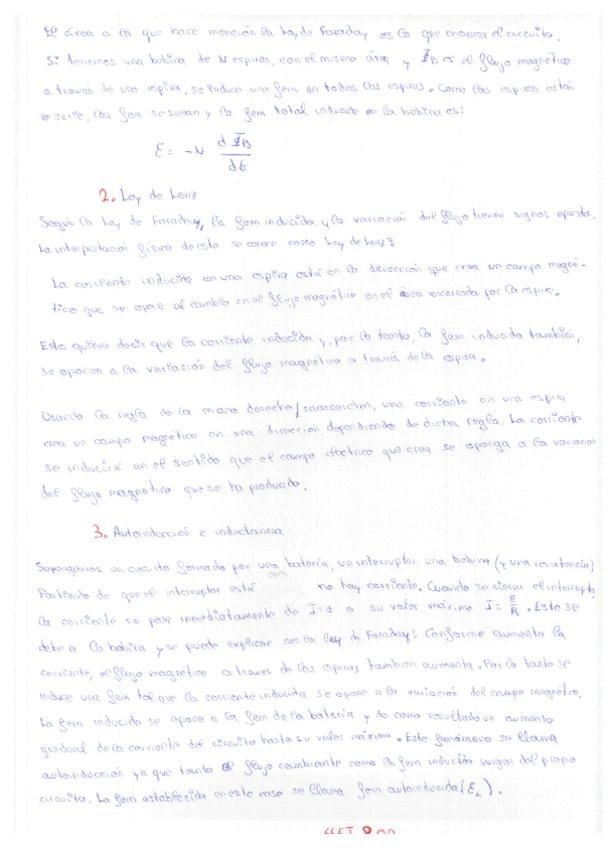 El área a la que hace mención la ley de Faraday es la que encierra el circuito.
Si tenemos una bobina de N espiras, con el mismo área y ΦB es el flujo magnético
a través de una espira, se induce una fem en todas las espiras. Como las espiras están
en serie, las fem se suman y la fem total inducida en la bobina es:
ε = -N dΦB/dt
2. Ley de Lenz
Según la ley de Faraday, la fem inducida y la variación del flujo tienen signos opuestos.
La interpretación física de esto se conoce como ley de Lenz:
La corriente inducida en una espira está en la dirección que crea un campo magné-
tico que se opone al cambio en el flujo magnético en el área encerrada por la espira.
Esto quiere decir que la corriente inducida y, por lo tanto, la fem inducida también,
se oponen a la variación del flujo magnético a través de la espira.
Usando la regla de la mano derecha/sacacorchos, una corriente en una espira
crea un campo magnético en una dirección dependiendo de dicha regla. La corriente
se inducirá en el sentido que el campo eléctrico que crea se oponga a la variación
del flujo magnético que se ha producido.
3. Autoinducción e inductancia
Supongamos un circuito formado por una batería, un interruptor, una bobina (y una resistencia)
Partiendo de que el interruptor está no hay corriente. Cuando se cierra el interruptor,
la corriente no pasa inmediatamente de I=0 a su valor máximo I = ε/R. Esto se
debe a la bobina y se puede explicar con la ley de Faraday: Conforme aumenta la
corriente, el flujo magnético a traves de las espiras tambien aumenta. Por lo tanto se
induce una fem tal que la corriente inducida se opone a la variación del campo magnético.
La fem inducida se opone a la fem de la batería y da como resultado un aumento
gradual de la corriente del circuito hasta su valor máximo. Este fenómeno se llama
autoinducción ya que tanto el flujo cambiante como la fem inducida surgen del propio
circuito. La fem establecida en este caso se llama fem autoinducida (εL).